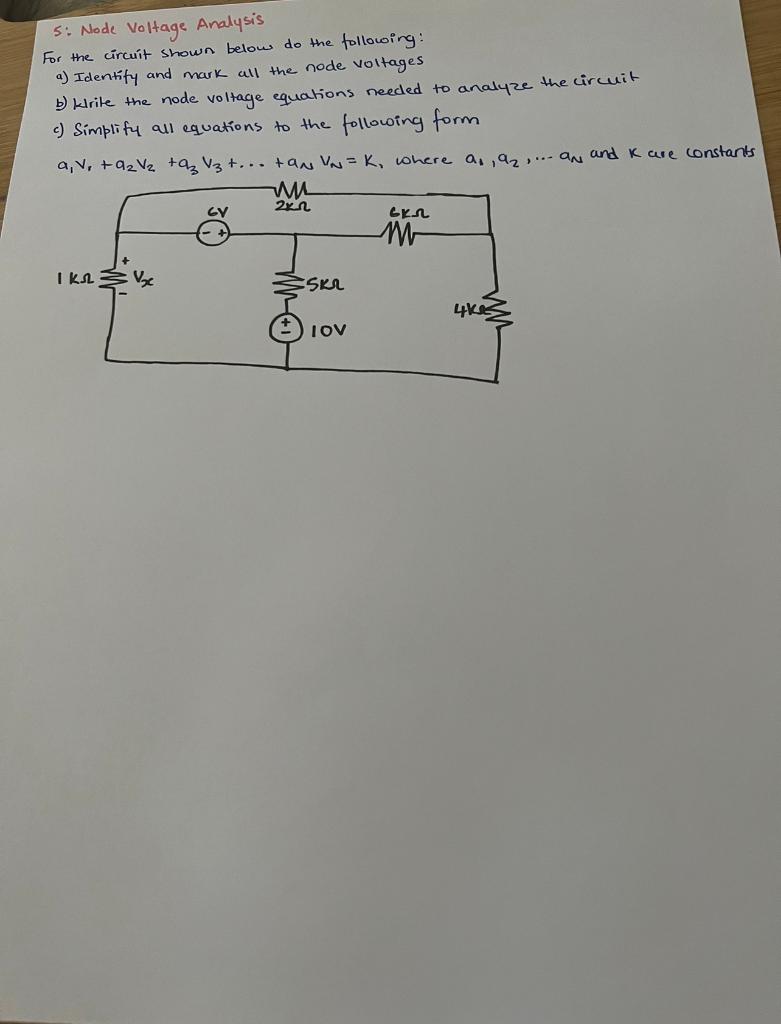 5: Node Voltage Analysis
For the circuit shown below do the following:
a) Identify and mark all the node voltages
b) Write the node voltage equations needed to analyze the circuit
c) Simplify all equations to the following form
a₁V₁ + a₂V₂ + a₃V₃ + ... + aN VN = K, where a₁, a₂, ... aN and K are constants
2kΩ
6V
6kΩ
- +
+
1kΩ
Vx
-
5kΩ
4kΩ
+
-
10V